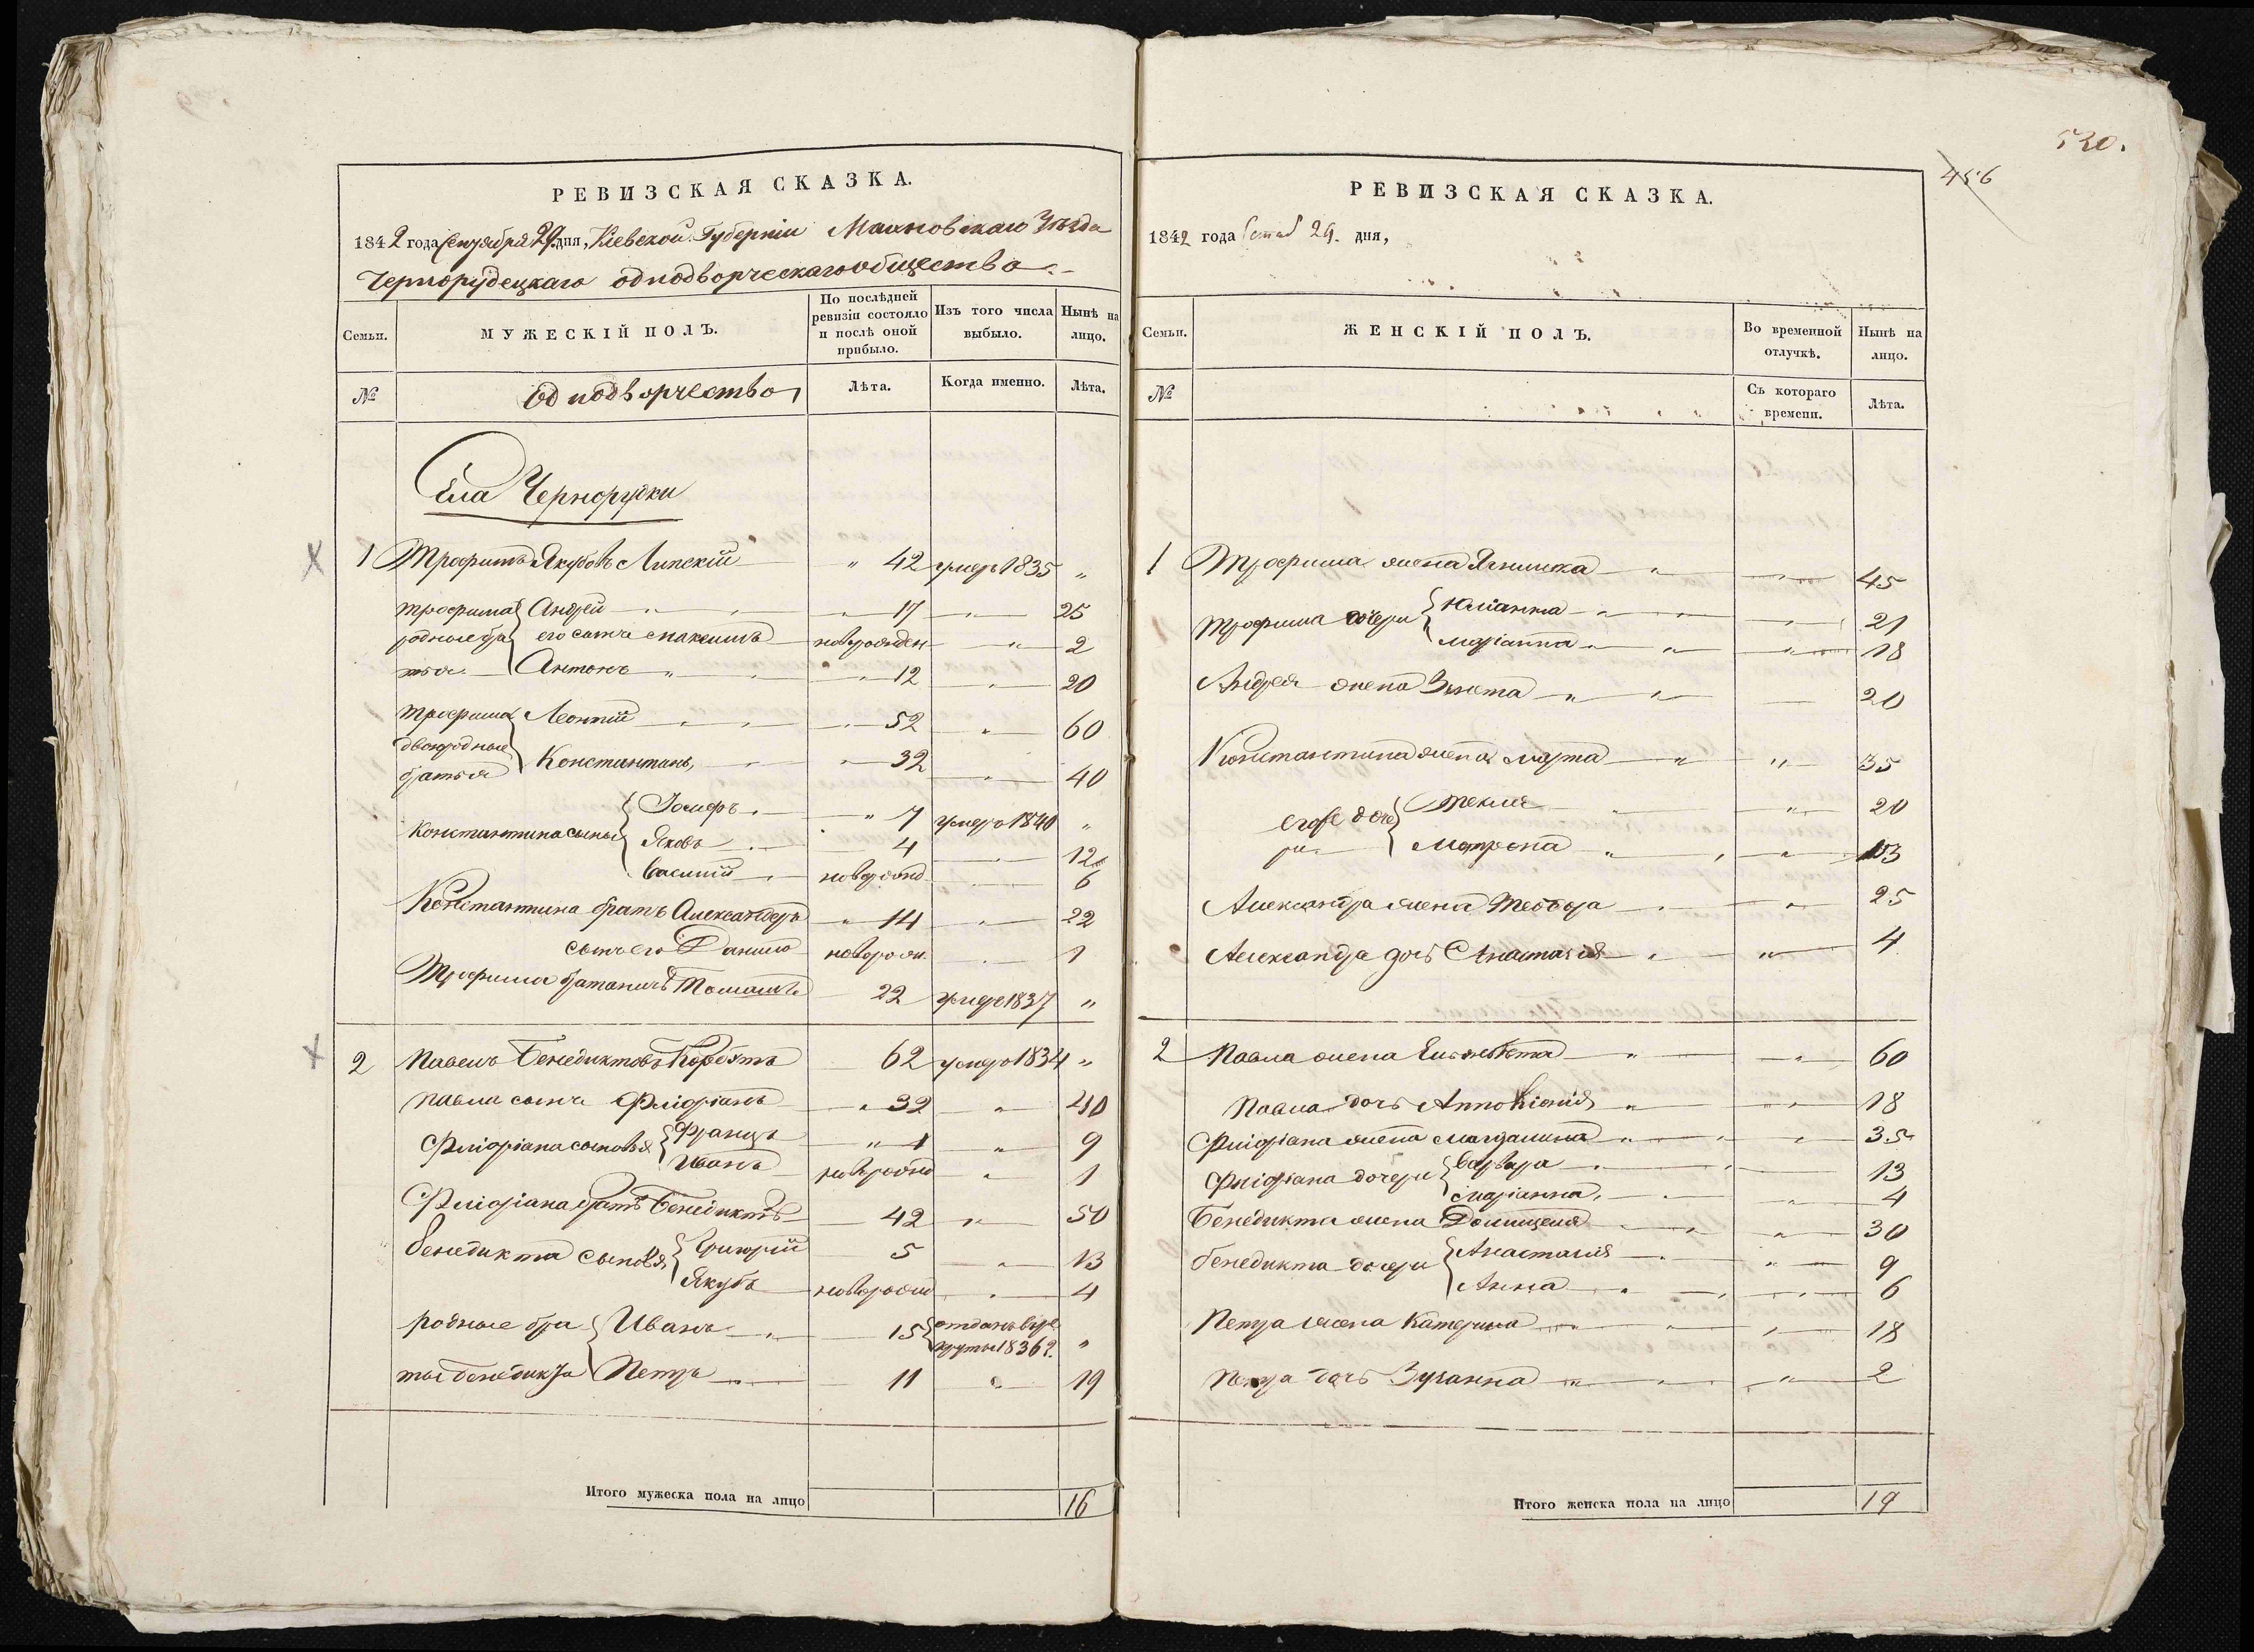 РЕВИЗСКАЯ СКАЗКА.
1842 года Сентября 29 дня, Кіевской Губерніи Махновскаго Уѣзда
Чернорудецкаго однодворческаго общества
Семьи.
МУЖЕСКІЙ ПОЛЪ.
По послѣдней ревизіи состояло и послѣ оной прибыло.
Изъ того числа выбыло.
Нынѣ на лицо.
№
Однодворчество
Лѣта.
Когда именно.
Лѣта.
Села Чернорудки
1 Трофимъ Якубовъ Липскій " 42 умеръ 1835 "
Трофима родные братья
Андрей " 17 " 25
его сынъ Максимъ новорожден " 2
Антонъ " 12 " 20
Трофима двоюродные братья
Леонтій " 52 " 60
Константинъ, " 32 " 40
Константина сыны
Іосифъ " 7 умеръ 1840 "
Яковъ 4 12
Василій новорожд 6
Константина братъ Александеръ " 14 " 22
сынъ его Данило новорож. 1
Трофима братаничъ Томашъ 22 умеръ 1837 "
2 Павелъ Бенедиктовъ 62 умеръ 1834 "
Павла сынъ Флюріанъ " 32 " 40
Флюріана сыновья
Францъ " 1 " 9
Иванъ новорожд " 1
Флюріана братъ Бенедиктъ 42 " 50
Бенедикта сыновья
Григорій 5 " 13
Якубъ новорожд 4
родные братья Бенедикта
Иванъ 15 отданъ врекруты 1836 г. "
Петръ 11 " 19
Итого мужеска пола на лицо 16
520.
456
РЕВИЗСКАЯ СКАЗКА.
1842 года 29. дня,
Семьи.
ЖЕНСКІЙ ПОЛЪ.
Во временной отлучкѣ.
Нынѣ на лицо.
№
Съ котораго времени.
Лѣта.
1 Трофима жена Ягнишка " 45
Трофима дочери
Юліанна 21
Маріанна 18
Андрея жена 20
Константина жена Марта " " 35
его же дочери
Текля " 20
Матрона " 13
Александра жена Теодора " 25
Александра дочь Анастасія " 4
2 Павла жена Елизавета " 60
Павла дочь Антонія " 18
Флюріана жена Магдалина " 35
Флюріана дочери
Варвара 13
Маріанна, " 4
Бенедикта жена Домицеля " 30
Бенедикта дочери
Анастасія " 9
Анна 6
Петра жена Катерина " 18
Петра дочь Зузанна " 2
Итого женска пола на лицо 19